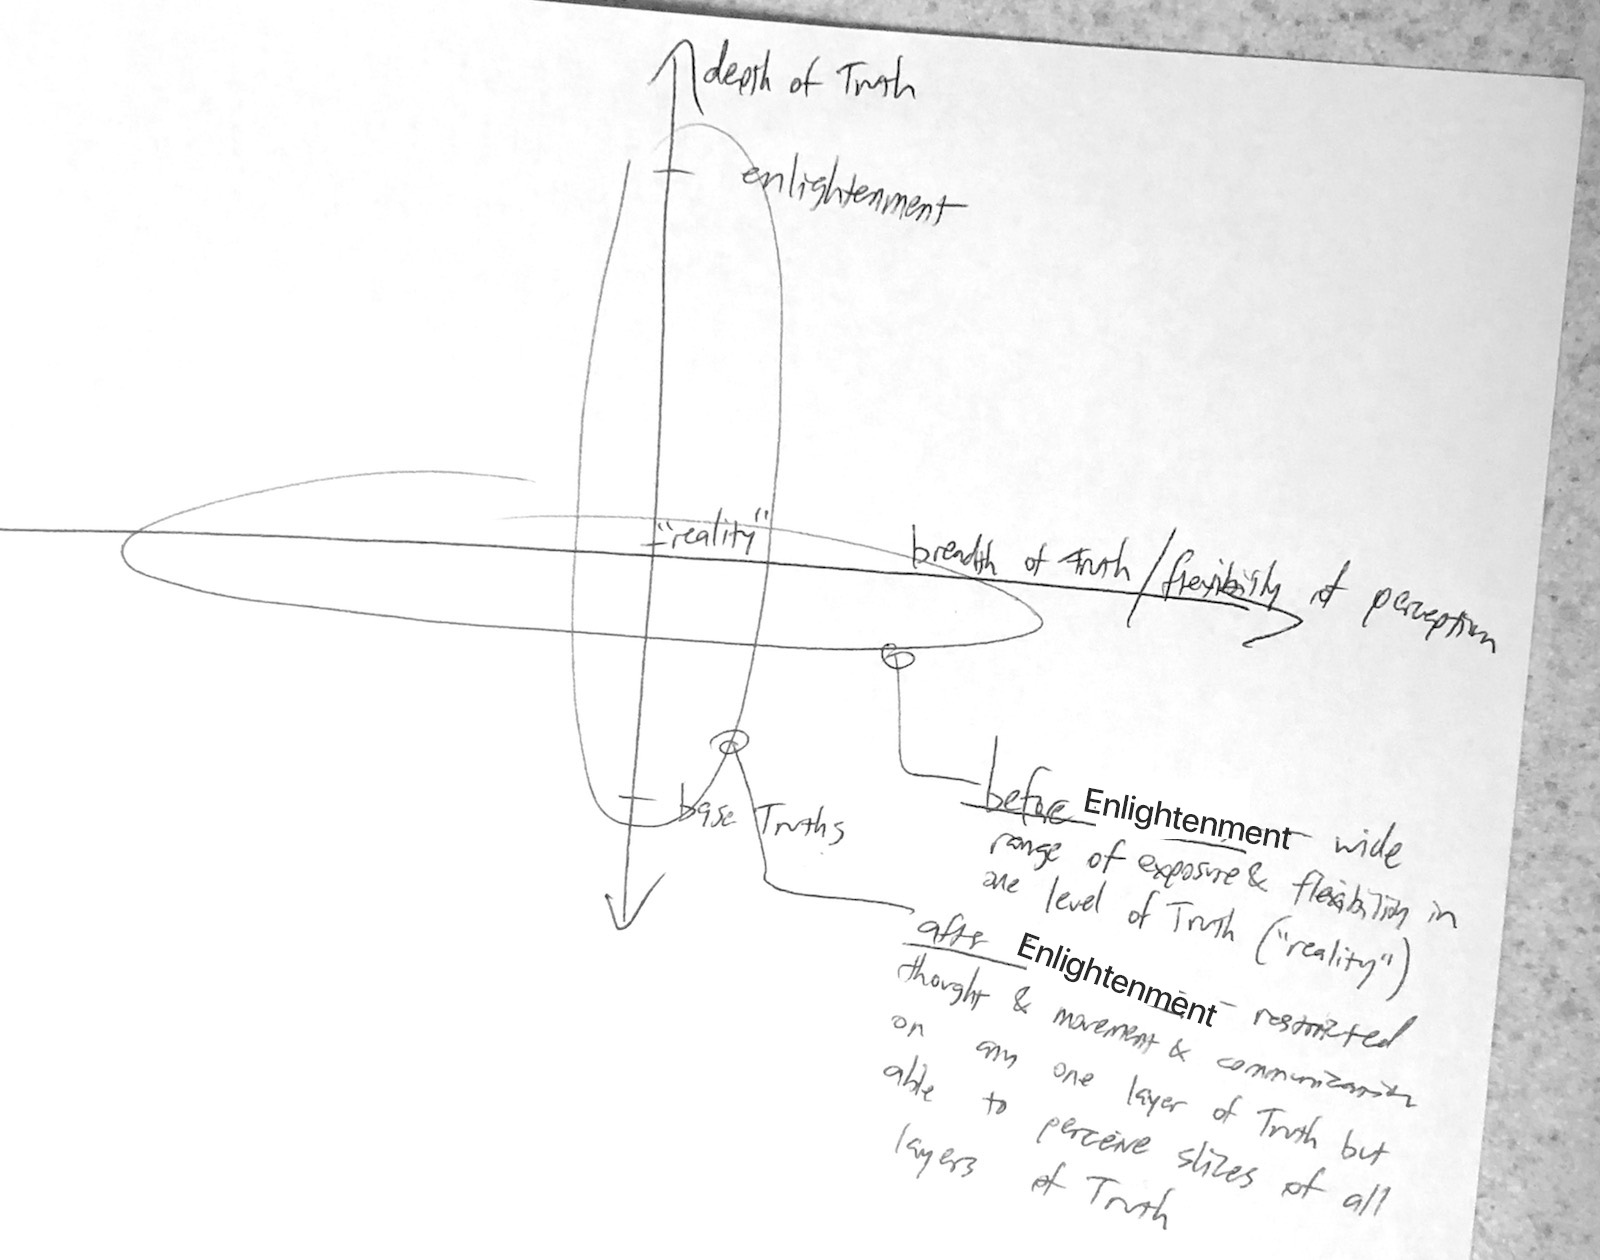 depth of Truth
enlightenment
"reality"
breadth of Truth / flexibility of perception
base Truths
before Enlightenment - wide
range of exposure & flexibility in
one level of Truth ("reality")
after Enlightenment - restricted
thought & movement & communication
on any one layer of Truth but
able to perceive slices of all
layers of Truth